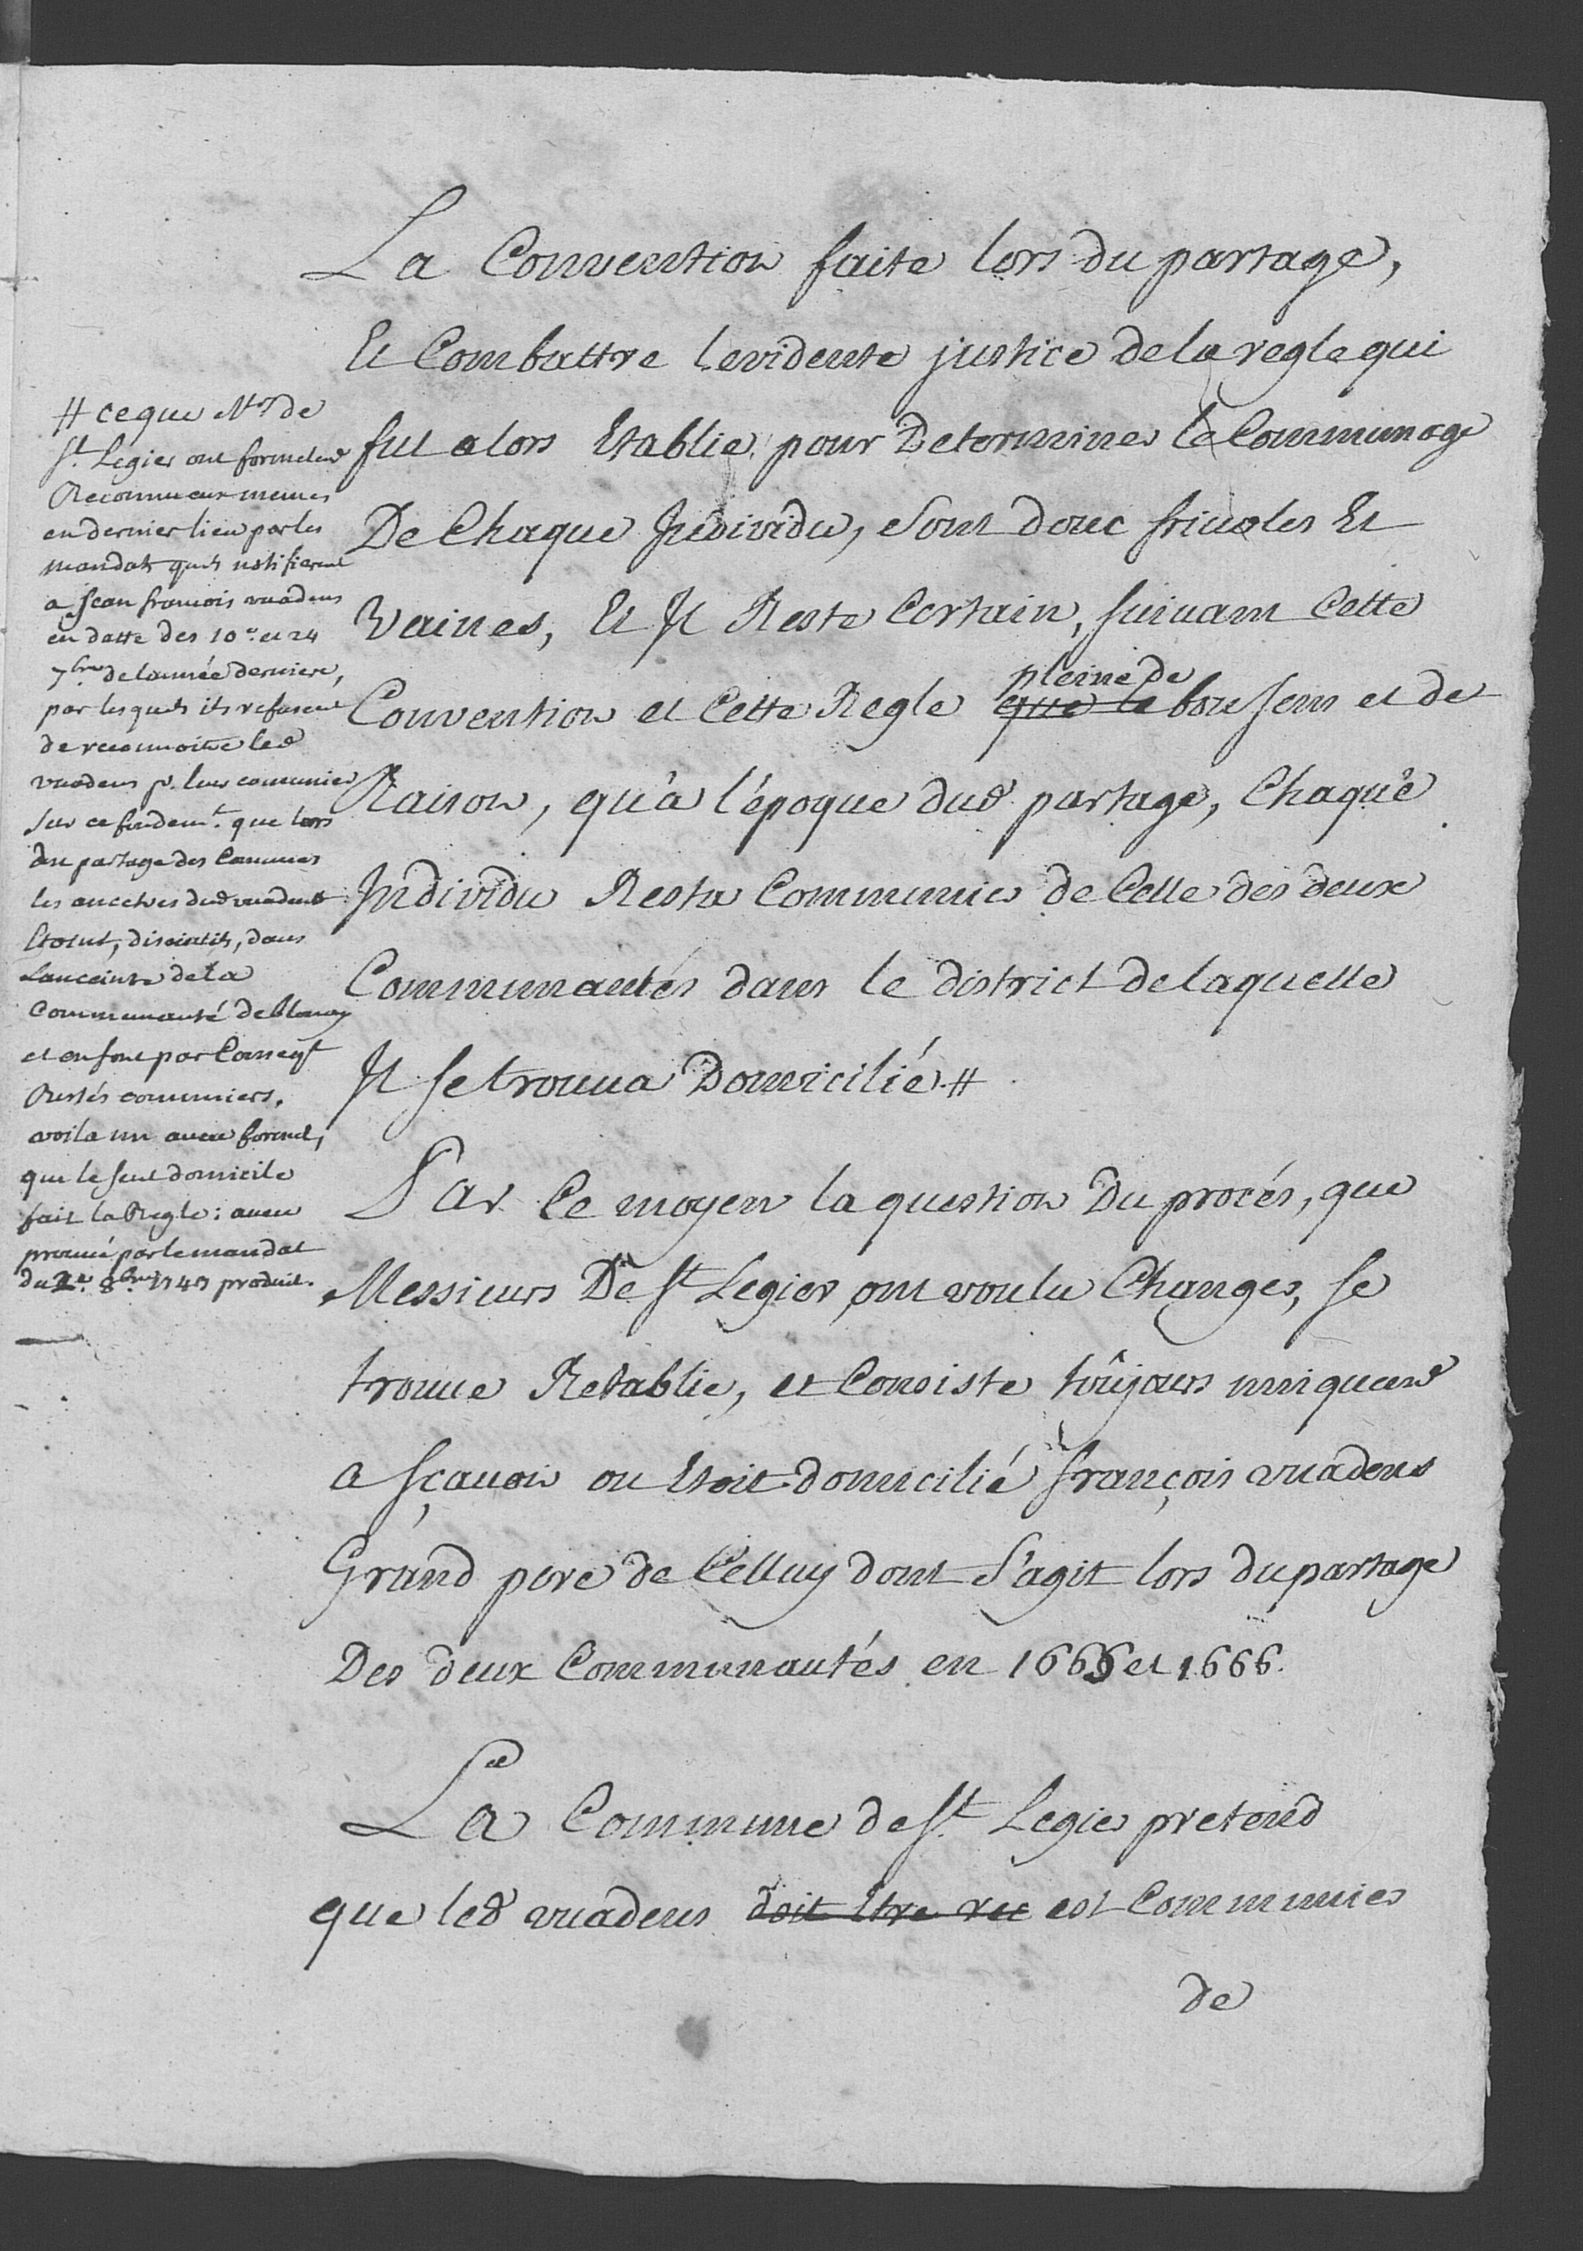 La Convention faite lors du partage,
Et Combattre levidente justice de la regle qui
fut alors Etablie pour Determiner le Communage
De Chaque Individu, sont donc frivoles Et
Vaines, Et Il Reste Certain, suivant Cette
pleine de
Convention et Cette Regle que le bon sens et de
Raison, qu'à l'époque dud. partage, Chaque
Individu Resta Communier de Celle des deux
Communautés dans le district de laquelle
Il se trouva Domicilié #
# ce que Mrs de
St. Legier ont formelmt
Reconnu eux memes
en dernier lieu par les
mandats quils notifierent
a Jean francois vuadens
en datte des 10e. et 24
7bre de lannée derniere,
par lesquels ils refusent
de reconnoitre led
vuadens pr. leur comunier
sur ce fondemt. que lors
du partage des Communes
les ancetres dud vuadens
Etoient, disoientils, dans
Lanceinte de la
Communauté de Blonay
et en sont par Conseqt
Restés communiers.
voila un aveu formel,
que le seul domicile
fait la Regle: aveu
prouvé par le mandat
du 8bre 1747 produit.
Par Ce moyen la question Du procés, que
Messieurs De St Legier ont voulu Changer, se
trouve Retablie, et Consiste toûjours uniquemt
a sçavoir ou Etoit domicilié françois vuadens
Grand pere de Celluy dont S'agit lors du partage
Des deux Communautés en 1665 et 1666.
La Commune de St. Legier pretend
que led vuadens doit Etre rec est Communier
de